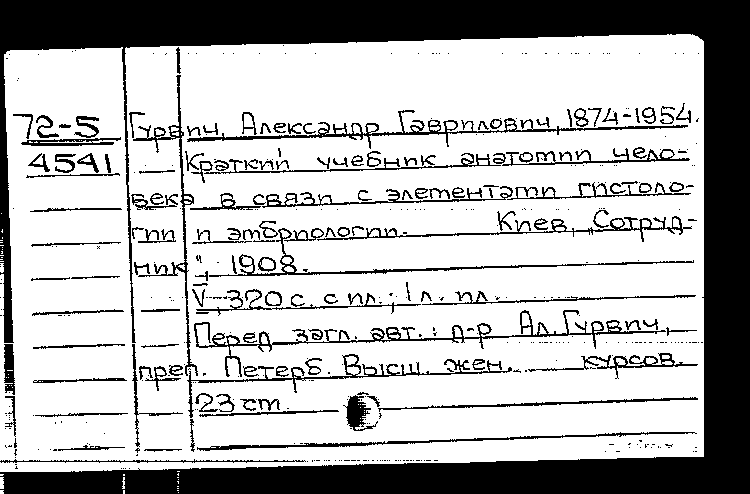 72-5 Гурвич, Александр Гаврилович, 1874-1954.
4541 Краткий учебник анатомии чело-
века в связи с элементами гистоло-
гии и эмбриологии. Киев, „Сотруд-
ник", 1908.
V, 320 с. с ил.; 1 л. ил.
Перед загл. авт.: д-р Ал. Гурвич,
преп. Петерб. Высш. жен. курсов.
23 см.